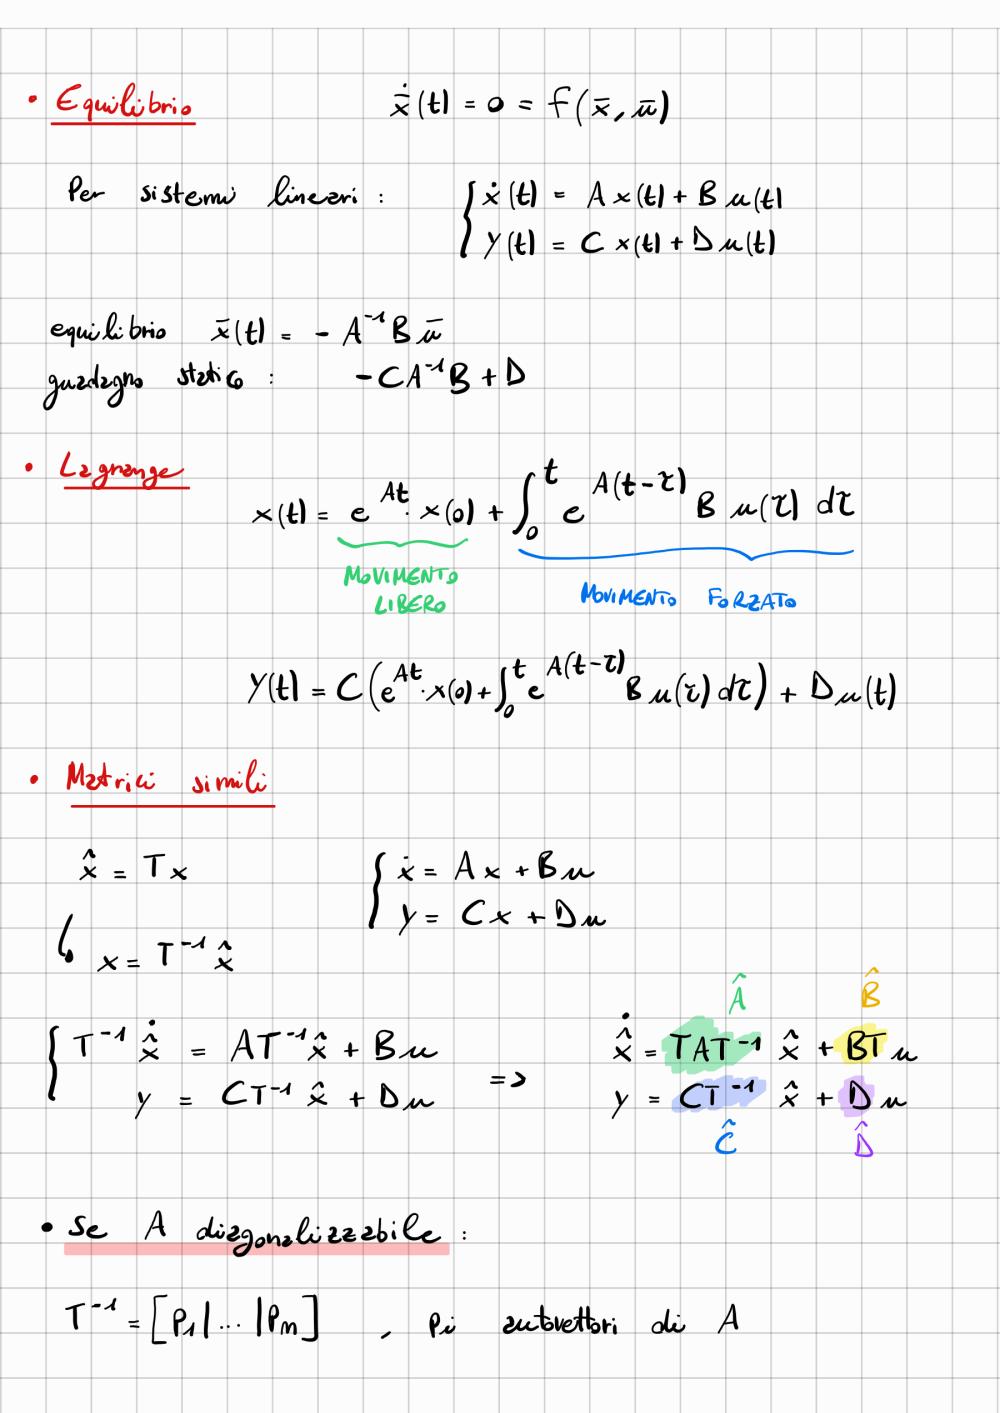 • Equilibrio ẋ̄(t) = 0 = f(x̄, ū)
Per sistemi lineari : { ẋ(t) = A x(t) + B u(t)
y(t) = C x(t) + D u(t)
equilibrio x̄(t) = - A⁻¹ B ū
guadagno statico : -CA⁻¹B + D
• Lagrange
x(t) = e^{At} · x(0) + ∫₀ᵗ e^{A(t-τ)} B u(τ) dτ
MOVIMENTO LIBERO
MOVIMENTO FORZATO
y(t) = C(e^{At} · x(0) + ∫₀ᵗ e^{A(t-τ)} B u(τ) dτ) + D u(t)
• Matrici simili
x̂ = Tx { ẋ = Ax + Bu
y = Cx + Du
↳ x = T⁻¹ x̂
Â B̂
{ T⁻¹ x̂̇ = AT⁻¹ x̂ + Bu => x̂̇ = TAT⁻¹ x̂ + BT u
y = CT⁻¹ x̂ + Du y = CT⁻¹ x̂ + D u
Ĉ D̂
• Se A diagonalizzabile :
T⁻¹ = [P₁| ... |Pₙ] , Pi autovettori di A